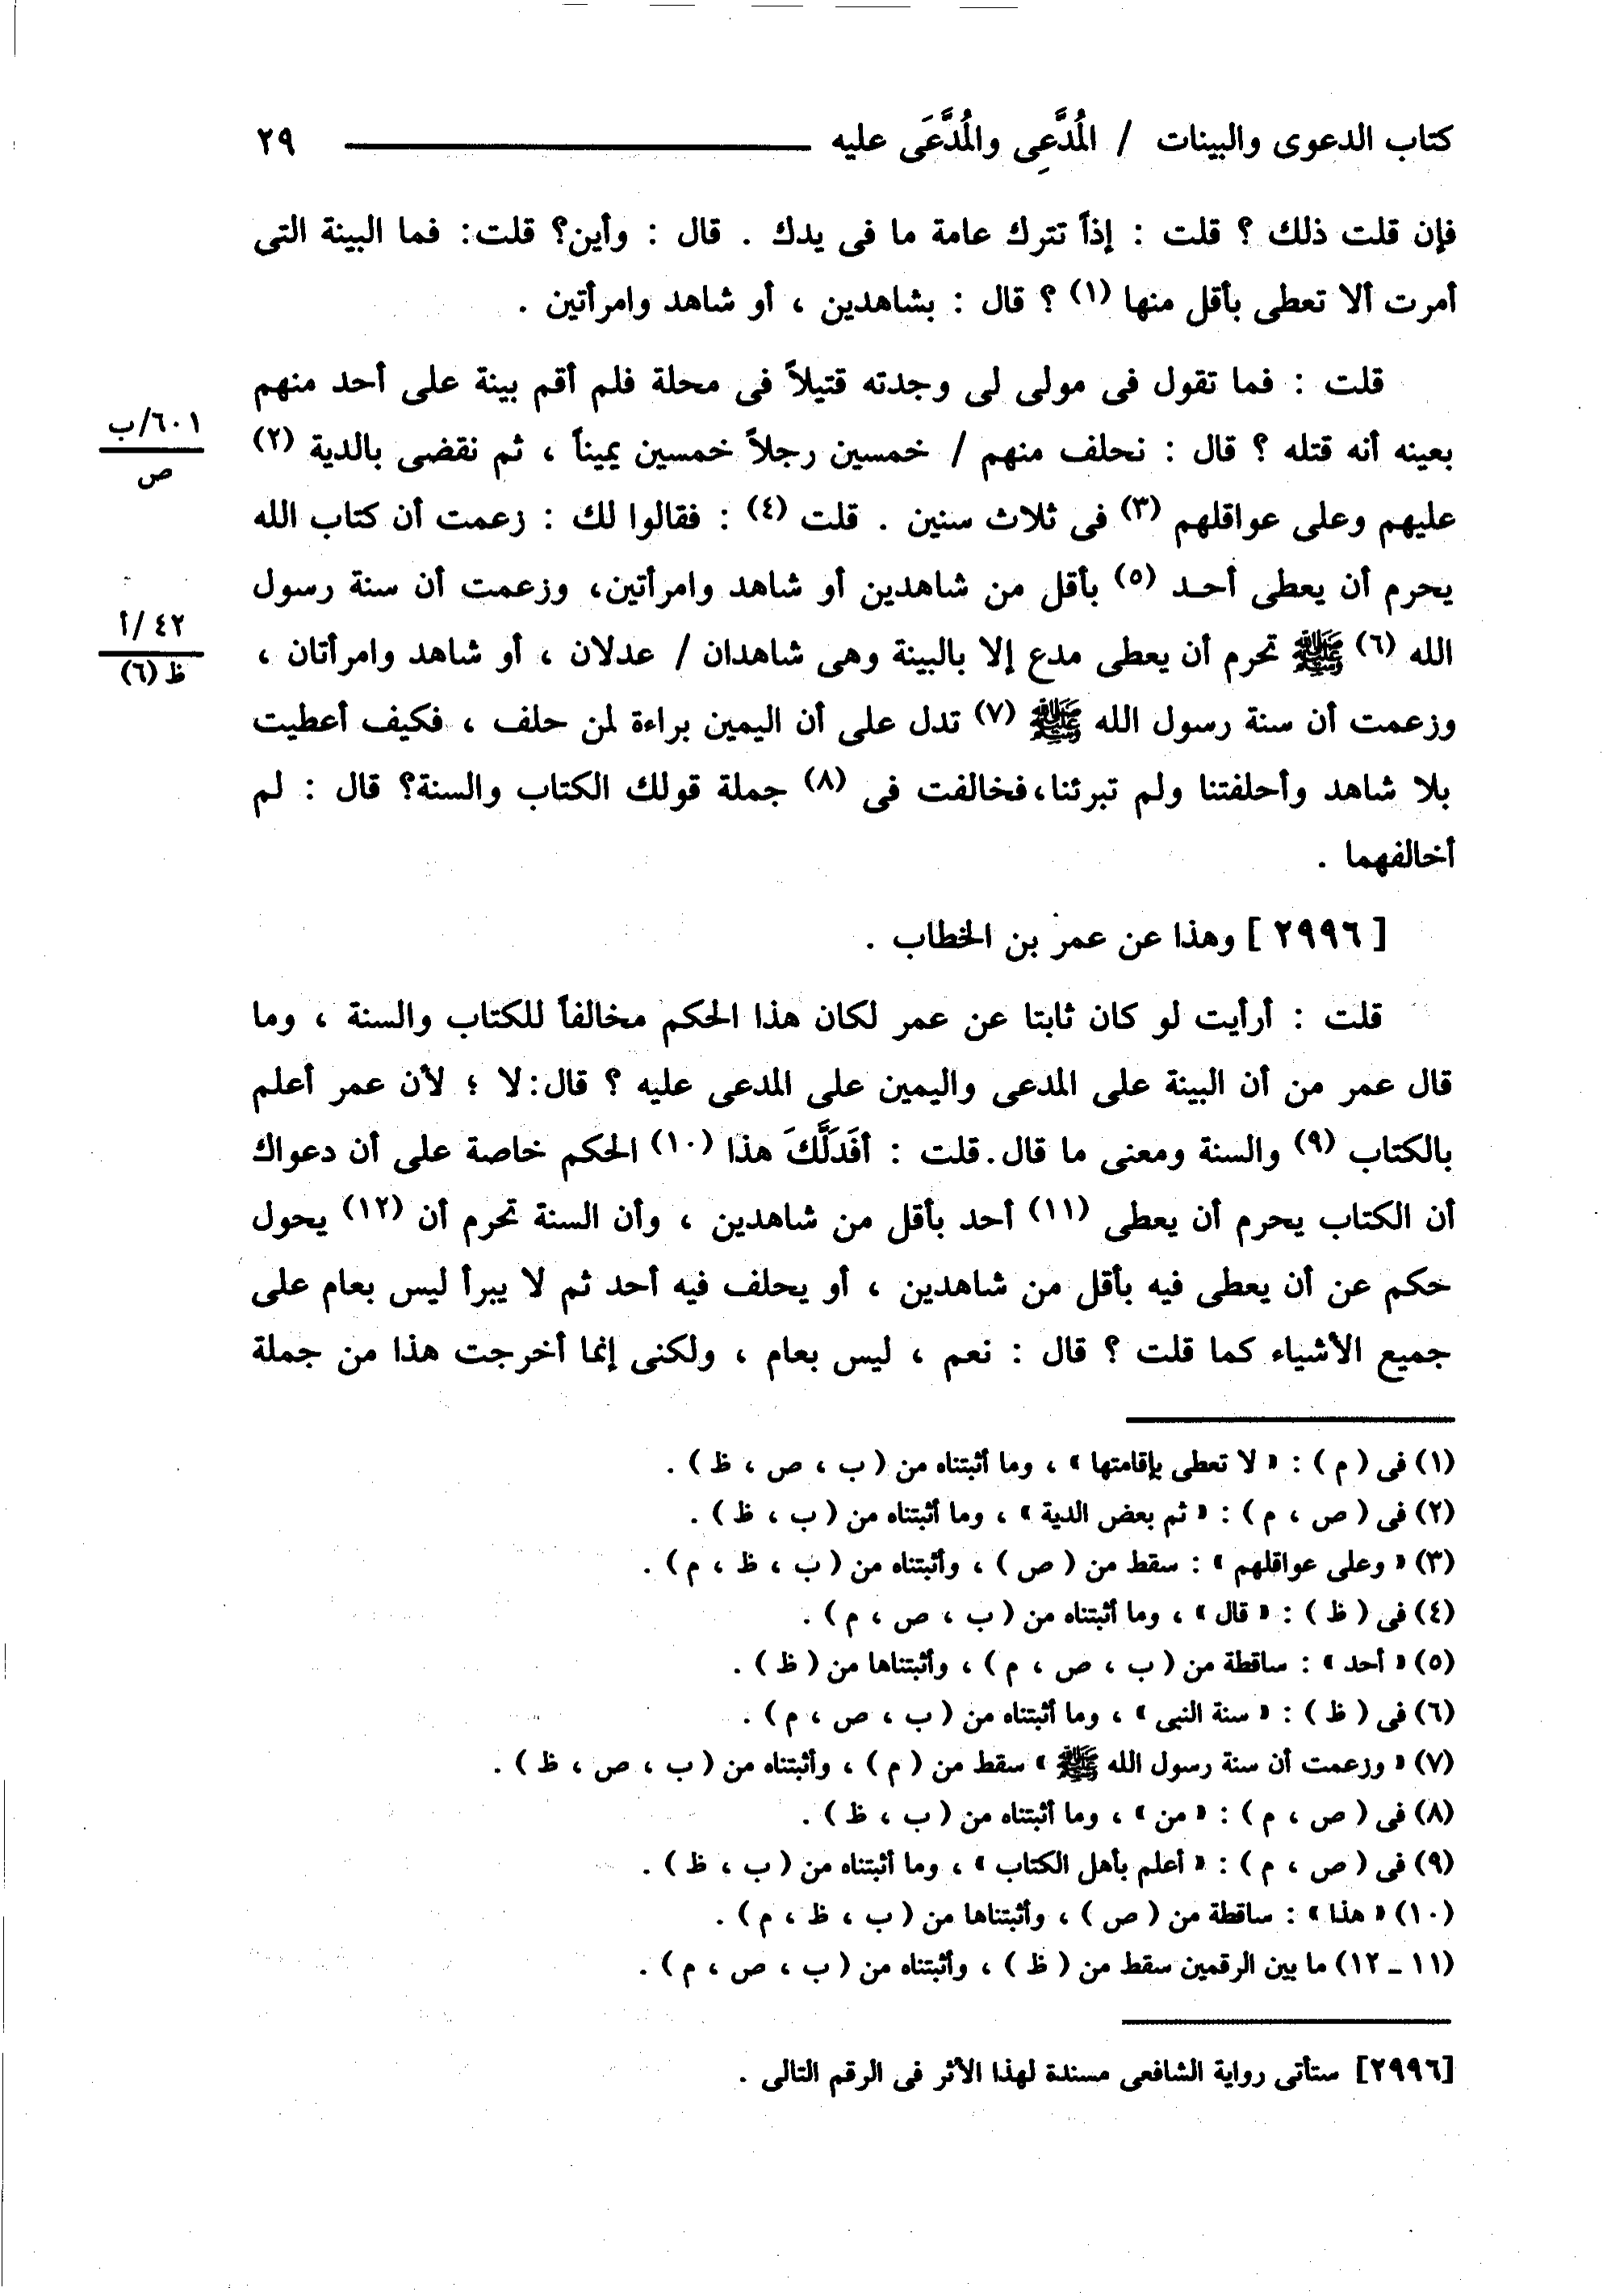 كتاب الدعوى والبينات / المُدَّعِى والمُدَّعَى عليه ٢٩
فإن قلت ذلك ؟ قلت : إذاً تترك عامة ما فى يدك . قال : وأين؟ قلت: فما البينة التى
أمرت ألا تعطى بأقل منها (١) ؟ قال : بشاهدين ، أو شاهد وامرأتين .
قلت : فما تقول فى مولى لى وجدته قتيلاً فى محلة فلم أقم بينة على أحد منهم
بعينه أنه قتله ؟ قال : نحلف منهم / خمسين رجلاً خمسين يميناً ، ثم نقضى بالدية (٢)
٦٠١/ب
ص
عليهم وعلى عواقلهم (٣) فى ثلاث سنين . قلت (٤) : فقالوا لك : زعمت أن كتاب الله
يحرم أن يعطى أحد (٥) بأقل من شاهدين أو شاهد وامرأتين، وزعمت أن سنة رسول
الله (٦) ﷺ تحرم أن يعطى مدع إلا بالبينة وهى شاهدان / عدلان ، أو شاهد وامرأتان ،
٤٢/أ
ظ (٦)
وزعمت أن سنة رسول الله ﷺ (٧) تدل على أن اليمين براءة لمن حلف ، فكيف أعطيت
بلا شاهد وأحلفتنا ولم تبرئنا،فخالفت فى (٨) جملة قولك الكتاب والسنة؟ قال : لم
أخالفهما .
[ ٢٩٩٦ ] وهذا عن عمر بن الخطاب .
قلت : أرأيت لو كان ثابتا عن عمر لكان هذا الحكم مخالفاً للكتاب والسنة ، وما
قال عمر من أن البينة على المدعى واليمين على المدعى عليه ؟ قال:لا ؛ لأن عمر أعلم
بالكتاب (٩) والسنة ومعنى ما قال. قلت : أفَدَلَّكَ هذا (١٠) الحكم خاصة على أن دعواك
أن الكتاب يحرم أن يعطى (١١) أحد بأقل من شاهدين ، وأن السنة تحرم أن (١٢) يحول
حكم عن أن يعطى فيه بأقل من شاهدين ، أو يحلف فيه أحد ثم لا يبرأ ليس بعام على
جميع الأشياء كما قلت ؟ قال : نعم ، ليس بعام ، ولكنى إنما أخرجت هذا من جملة
(١) فى ( م ) : « لا تعطى بإقامتها » ، وما أثبتناه من ( ب ، ص ، ظ ) .
(٢) فى ( ص ، م ) : « ثم بعض الدية » ، وما أثبتناه من ( ب ، ظ ) .
(٣) « وعلى عواقلهم » : سقط من ( ص ) ، وأثبتناه من ( ب ، ظ ، م ) .
(٤) فى ( ظ ) : « قال » ، وما أثبتناه من ( ب ، ص ، م ) .
(٥) « أحد » : ساقطة من ( ب ، ص ، م ) ، وأثبتناها من ( ظ ) .
(٦) فى ( ظ ) : « سنة النبى » ، وما أثبتناه من ( ب ، ص ، م ) .
(٧) « وزعمت أن سنة رسول الله ﷺ » سقط من ( م ) ، وأثبتناه من ( ب ، ص ، ظ ) .
(٨) فى ( ص ، م ) : « من » ، وما أثبتناه من ( ب ، ظ ) .
(٩) فى ( ص ، م ) : « أعلم بأهل الكتاب » ، وما أثبتناه من ( ب ، ظ ) .
(١٠) « هذا » : ساقطة من ( ص ) ، وأثبتناها من ( ب ، ظ ، م ) .
(١١ ـ ١٢) ما بين الرقمين سقط من ( ظ ) ، وأثبتناه من ( ب ، ص ، م ) .
[٢٩٩٦] ستأتى رواية الشافعى مسندة لهذا الأثر فى الرقم التالى .